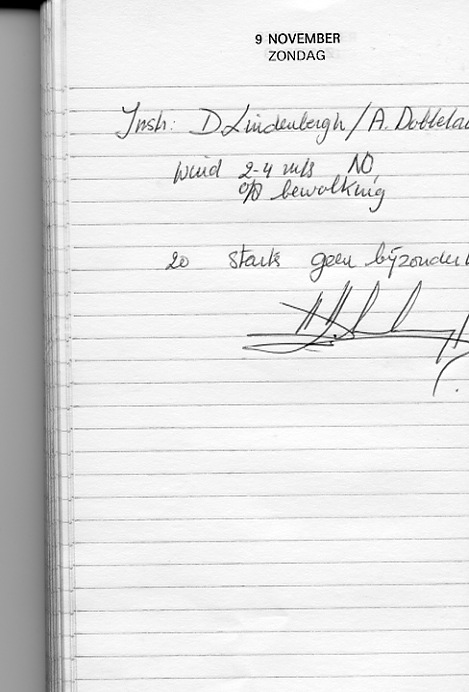 9 NOVEMBER
ZONDAG
Instr: D. Lindenbergh / A. Dobbela
wind 2-4 m/s NO
0/8 bewolking
20 starts geen bijzonder